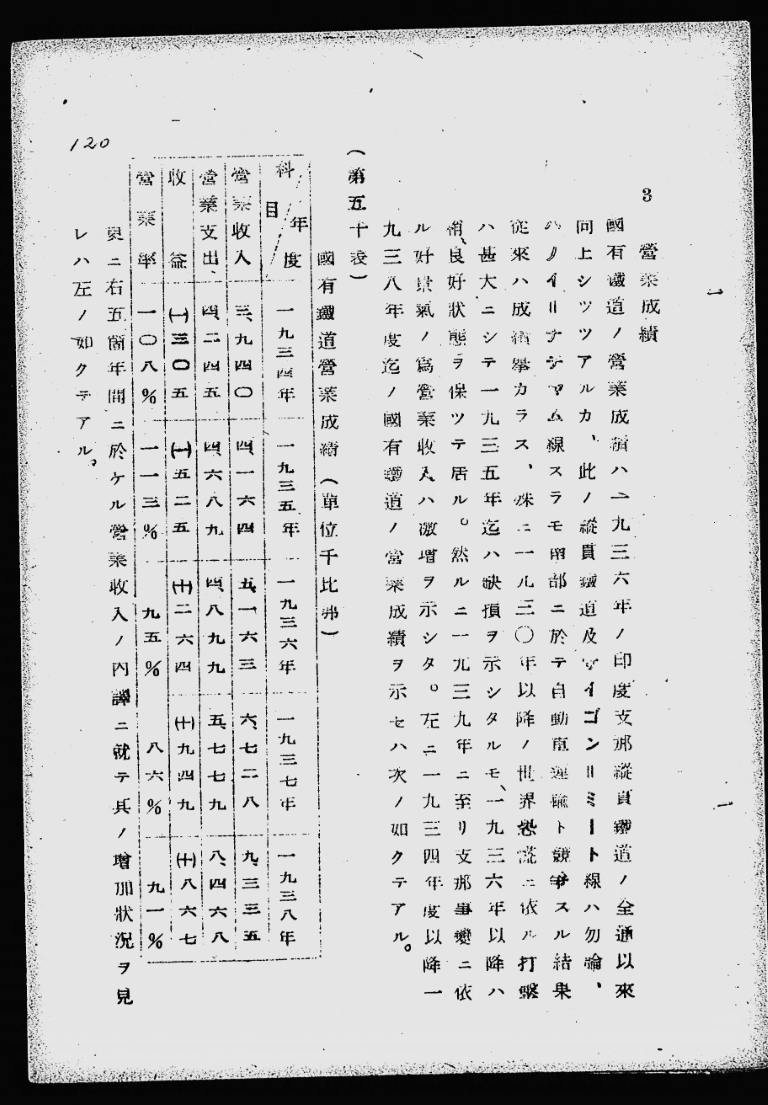 3 營業成績
國有鐵道ノ營業成績ハ一九三六年ノ印度支那縱貫鐵道ノ全通以來
向上シツツアルカ、此ノ縱貫鐵道及サイゴン=ミート線ハ勿論、
ハノイ=ナシヤム線スラモ南部ニ於テ自動車運輸ト競爭スル結果
從來ハ成績擧カラス、殊ニ一九三〇年以降ノ世界恐慌ニ依ル打擊
ハ甚大ニシテ一九三五年迄ハ缺損ヲ示シタルモ、一九三六年以降ハ
稍良好狀態ヲ保ツテ居ル。然ルニ一九三九年ニ至リ支那事變ニ依
ル好景氣ノ爲營業收入ハ激增ヲ示シタ。左ニ一九三四年度以降一
九三八年度迄ノ國有鐵道ノ營業成績ヲ示セハ次ノ如クテアル。
(第五十表)
國有鐵道營業成績(單位千比弗)
科目/年度 一九三四年 一九三五年 一九三六年 一九三七年 一九三八年
營業收入 三、九四〇 四、一六四 五、一六三 六、七二八 九、三三五
營業支出 四、二四五 四、六八九 四、八九九 五、七七九 八、四六八
收益 (一)三〇五 (一)五二五 (十)二六四 (十)九四九 (十)八六七
營業率 一〇八% 一一三% 九五% 八六% 九一%
更ニ右五箇年間ニ於ケル營業收入ノ內譯ニ就テ其ノ增加狀況ヲ見
レハ左ノ如クテアル。
120